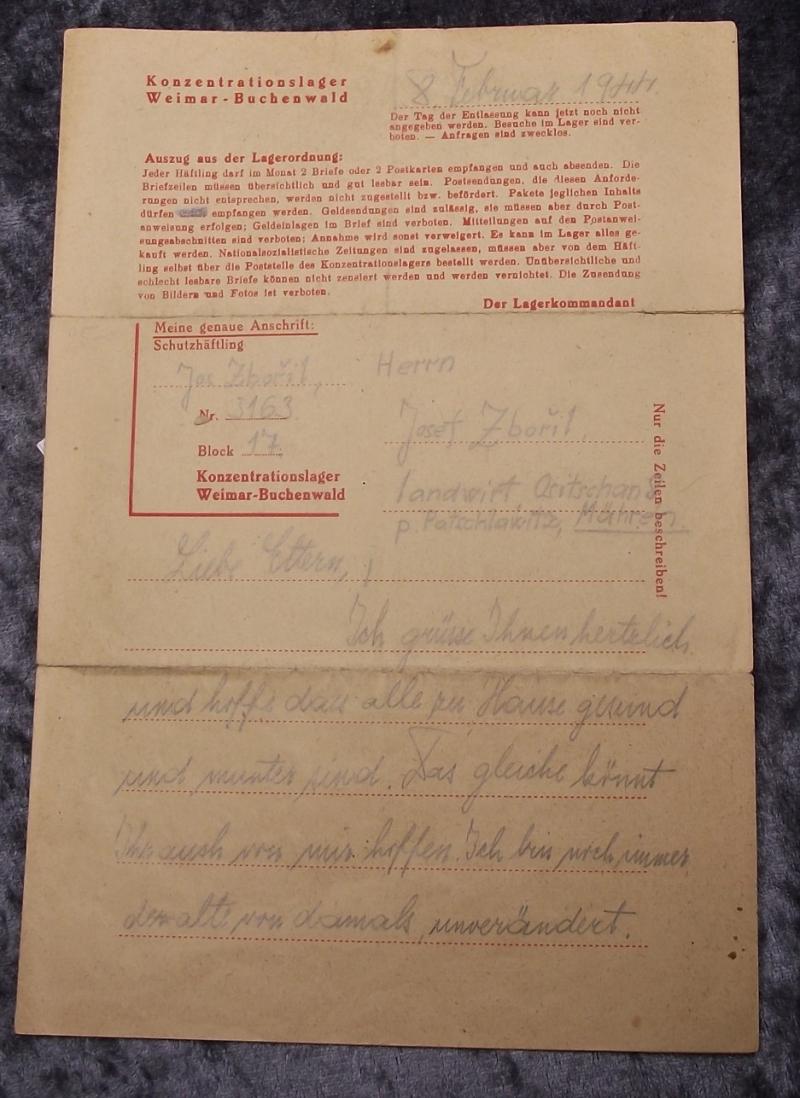 Konzentrationslager
Weimar-Buchenwald
8. Februar 1944.
Der Tag der Entlassung kann jetzt noch nicht
angegeben werden. Besuche im Lager sind ver-
boten. — Anfragen sind zwecklos.
Auszug aus der Lagerordnung:
Jeder Häftling darf im Monat 2 Briefe oder 2 Postkarten empfangen und auch absenden. Die
Briefzeilen müssen übersichtlich und gut lesbar sein. Postsendungen, die diesen Anforde-
rungen nicht entsprechen, werden nicht zugestellt bzw. befördert. Pakete jeglichen Inhalts
dürfen empfangen werden. Geldsendungen sind zulässig, sie müssen aber durch Post-
anweisung erfolgen; Geldeinlagen im Brief sind verboten. Mitteilungen auf den Postanwei-
sungsabschnitten sind verboten; Annahme wird sonst verweigert. Es kann im Lager alles ge-
kauft werden. Nationalsozialistische Zeitungen sind zugelassen, müssen aber von dem Häft-
ling selbst über die Poststelle des Konzentrationslagers bestellt werden. Unübersichtliche und
schlecht lesbare Briefe können nicht zensiert werden und werden vernichtet. Die Zusendung
von Bildern und Fotos ist verboten.
Der Lagerkommandant
Meine genaue Anschrift:
Schutzhäftling
Jos Zbořil,
Nr. 3163
Block 17
Konzentrationslager
Weimar-Buchenwald
Herrn
Josef Zbořil,
landwirt
p. Patschlawitz, Mähren.
Nur die Zeilen beschreiben!
Liebe Eltern,
Ich grüsse Ihnen hertzlich
und hoffe dass alle zu Hause gesund
und munter sind. Das gleiche könnt
Ihr auch von mir hoffen. Ich bin noch immer
der alte von damals, unverändert.